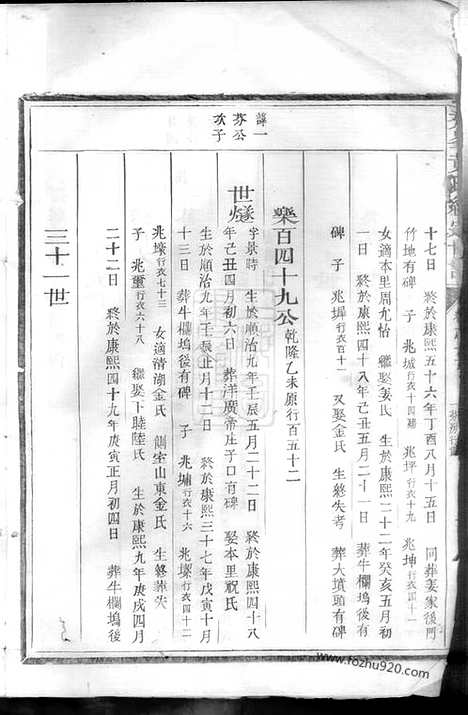 十七日 終於康熙五十六年丁酉八月十五日 同葬姜家後門
竹地有碑 子 兆城行衣四十四繼 兆坪行衣十九 兆坤行衣四十一
女適本里周允怡 繼娶姜氏 生於康熙二十二年癸亥五月初
一日 終於康熙四十八年己丑五月二十一日 葬牛欄塢後有
碑 子 兆墀行衣百十一 又娶金氏 生終失考 葬大墳頭有碑
樂百四十九公乾隆乙未原行百五十二
諱一
芬公
次子
世燧字景時 生於順治九年壬辰五月二十二日 終於康熙四十八
年己丑四月初六日 葬洋廣帝庄子口有碑 娶本里祝氏
生於順治九年壬辰正月十二日 終於康熙三十七年戊寅十月
十三日 葬牛欄塢後有碑 子 兆埔行衣十六 兆墚行衣四十二
兆壕行衣七十三 女適清湖金氏 側室山東金氏 生終葬失
子 兆壐行衣六十八 繼娶下睦陸氏 生於康熙九年庚戌四月
二十二日 終於康熙四十九年庚寅正月初四日 葬牛欄塢後
三十一世
www.fozhu920.com